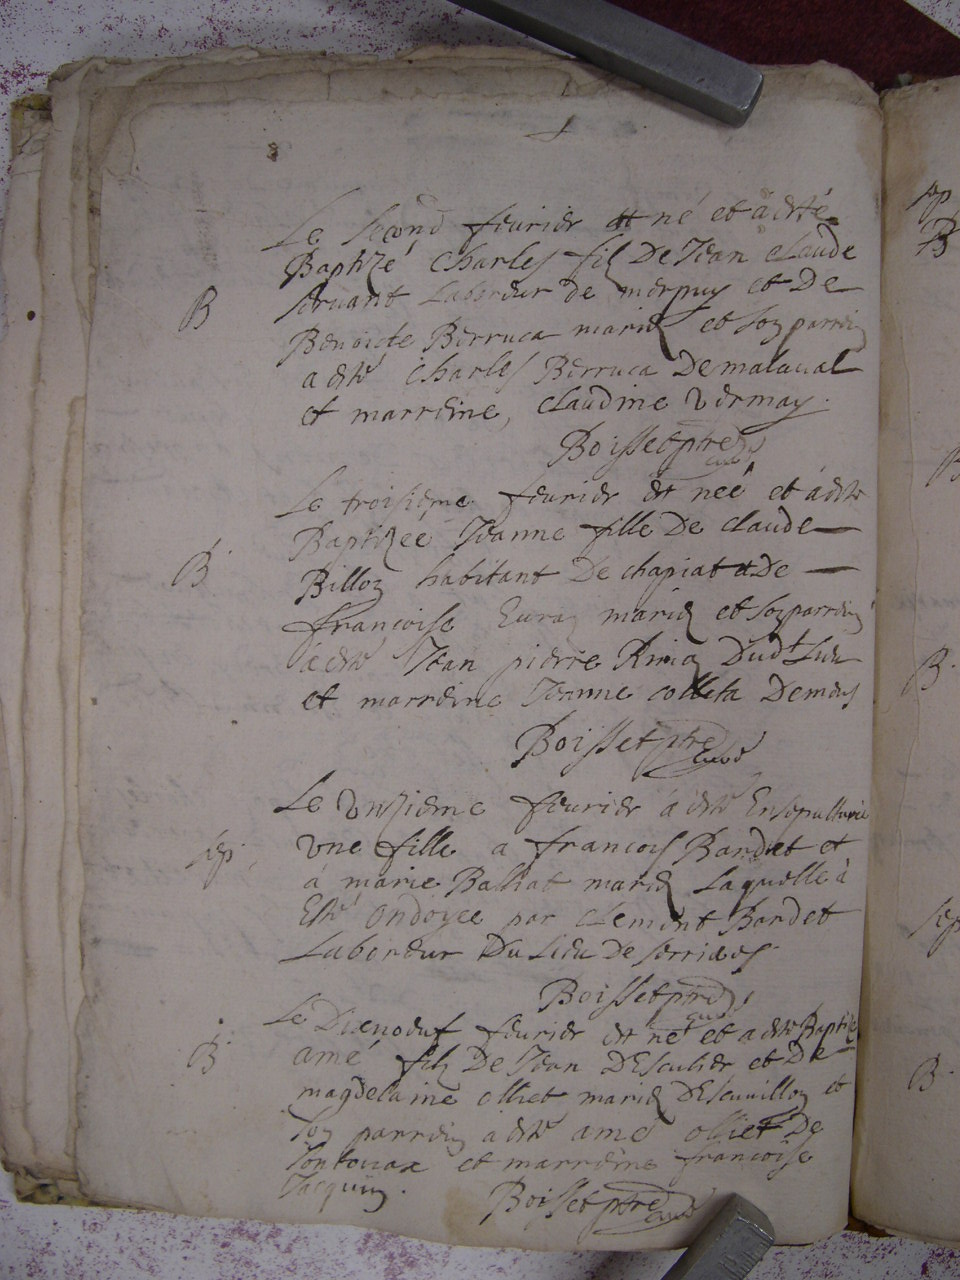 Le second feurier est né et a esté
Baptizé Charles filz De Jean claude
seruant Laboreur de merpuy et De
B
Benoicte Berruca mariez et son parrein
a esté charles Berruca De malaual
et marreine, claudine Vermay
Boisset ptre
curé
Le troisieme feurier est neé et a esté
Baptizeé Jeanne fille De claude
B
Billoz habitant De chapiat et De
françoise mariez et son parrein
a esté Jean pierre Dudt Lieu
et marreine Jeanne colleta
Boisset ptre
curé
Le Vnzieme feurier a esté Ensepulturée
sep
Vne fille a francois Bardet et
a marie Balliat mariez Laquelle à
Esté ondoyee par clement Bardet
Laboreur Du Lieu De
Boisset ptre
curé
Le Dixneouf feurier est né et a esté Baptizé
B
amé filz De Jean DEscuHer et De
magdelaine olliet mariez et
son parrein a esté amé olliet De
et marreine francoise
Jacquin
Boisset ptre
curé
sep
B
B
B
sep
B